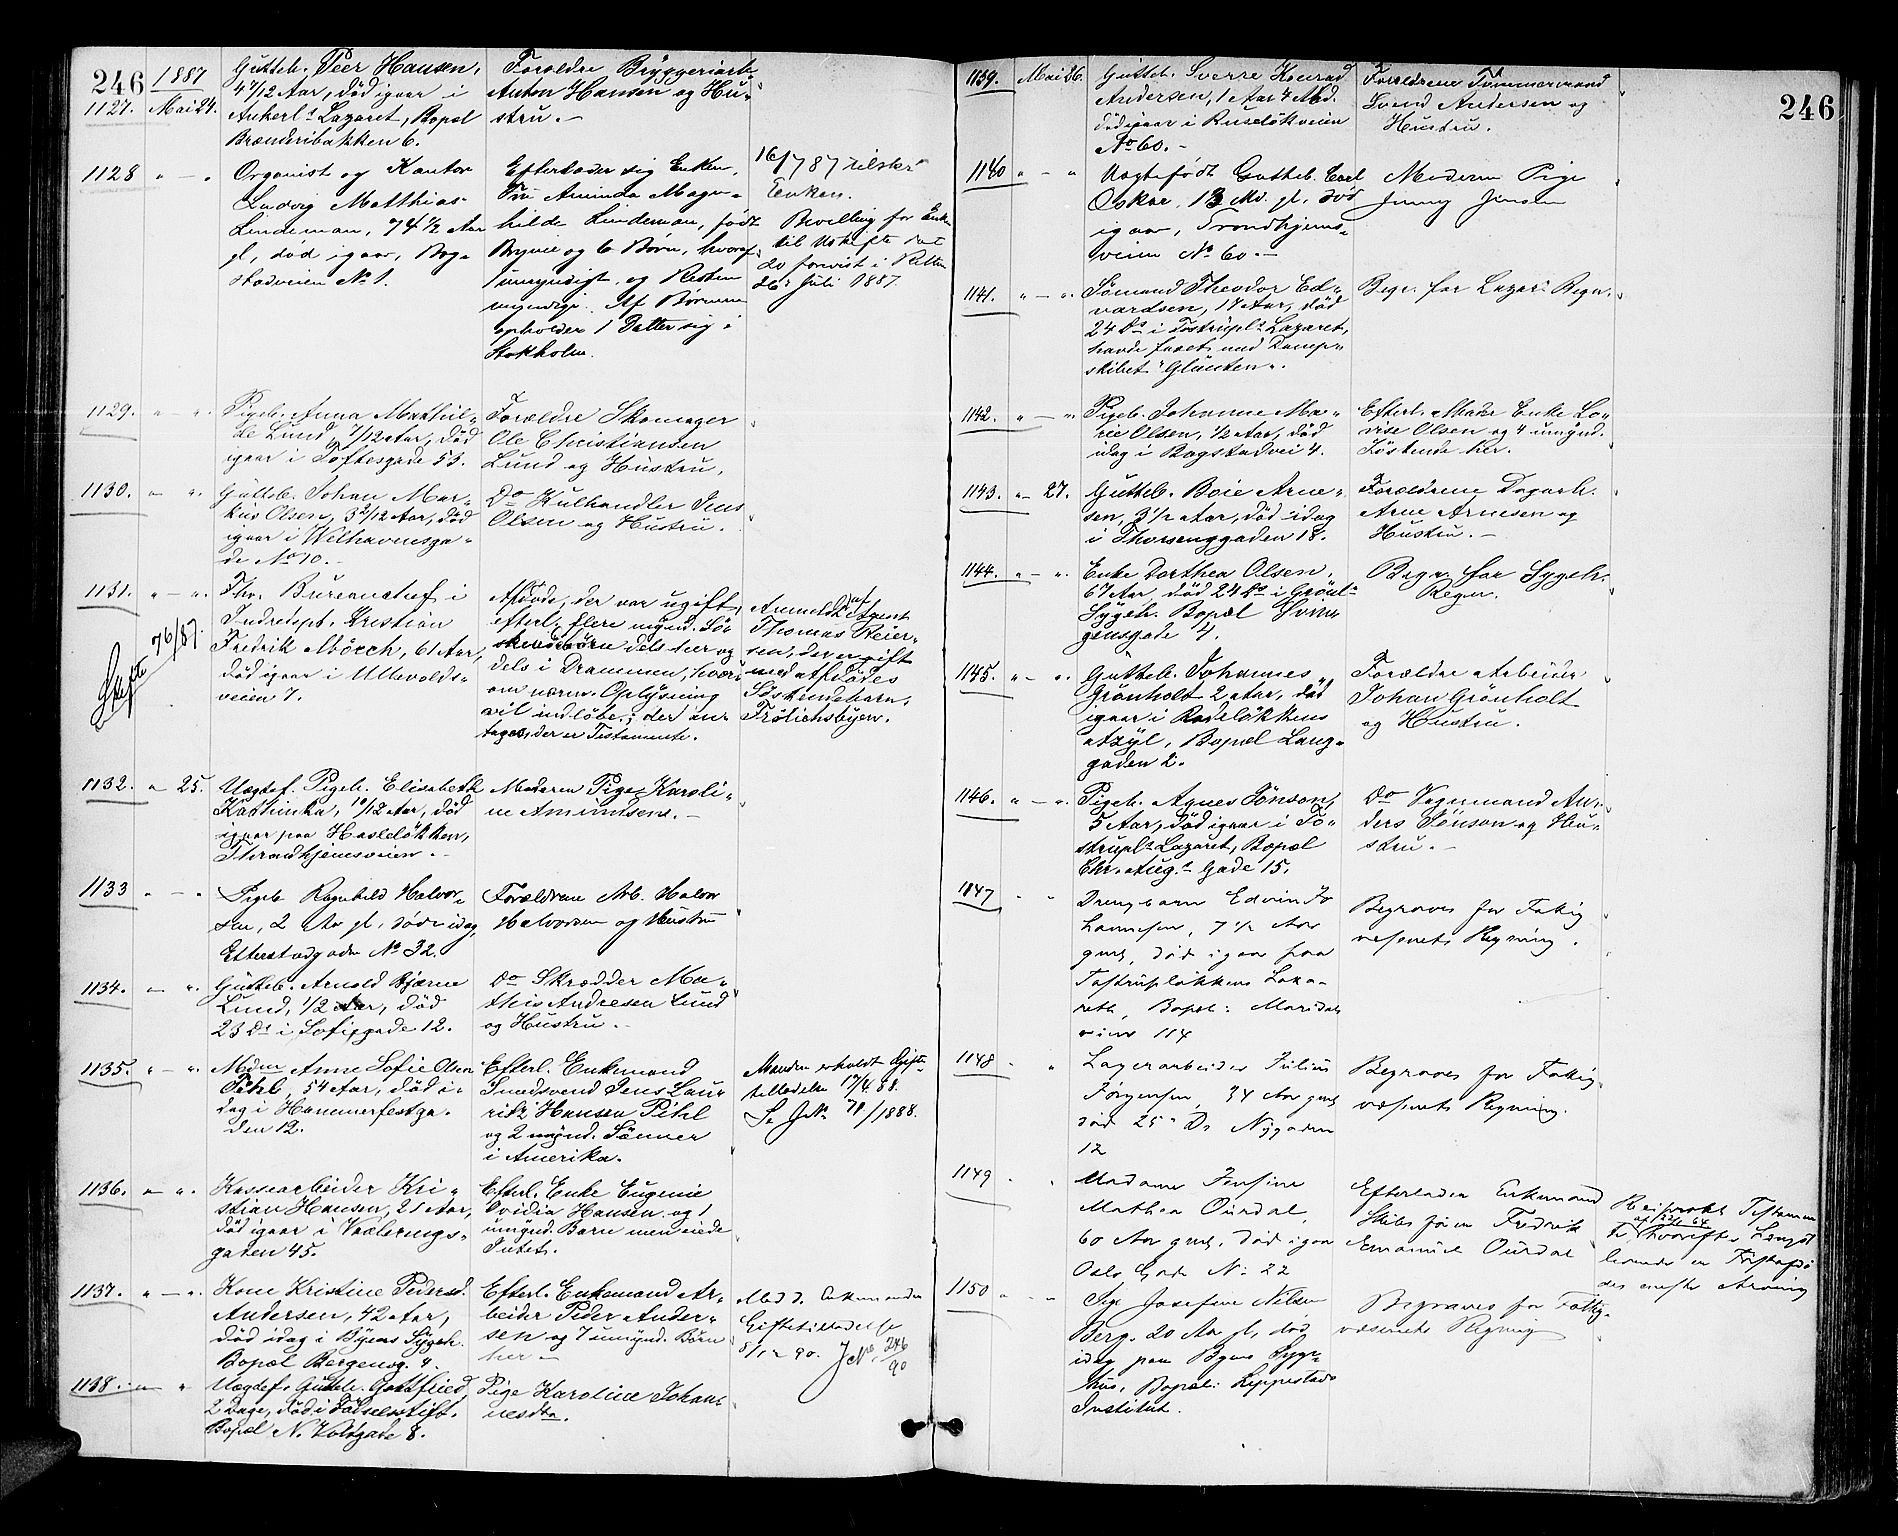 246
1887
1127. Mai 24.
Gutteb. Peer Hansen,
4 7/12 Aar, död igaar i
Ankerl.s Lazaret, Bopæl
Brænderibakken 6.
Forældre Bryggeriarb.
Anton Hansen og Hu-
stru.
1128 " — "
Organist og Kantor
Ludvig Matthias
Lindeman, 74 1/2 Aar
gl, död igaar, Bog-
stadveien No 1.
Efterlader sig Enken,
Fru Aminda Magn-
hilde Lindeman, født
Brynie og 6 Børn, hvoraf
1 umyndigt, og Resten
myndige. Af Børnene
opholder 1 Datter sig i
Stokholm.
16/7 87 tilsk.
Enken.
Bevilling for Enken
til Uskifte dat
20 forevist i Retten
26 Juli 1887.
1129. " — "
Pigeb. Anna Mathil-
de Lund, 7/12 Aar, död
igaar i Toftesgade 53.
Forældre Skomager
Ole Christiansen
Lund og Hustru.
1130. " "
Gutteb. Johan Mar-
kus Olsen, 3 2/12 Aar, död
igaar i Welhavensga-
de No 10.
Do Kulhandler Jens
Olsen og Hustru.
1131. " — "
Skifte 76/87.
Fhv. Bureauchef i
Indredept. Kristian
Fredrik Mörch, 61 Aar,
död igaar i Ullevolds-
veien 7.
Afdøde, der var ugift,
efterl. flere mynd. Sø-
skendebørn dels her og
dels i Drammen, hvor-
om nærm. Oplysning
vil indløbe; der an-
tages, der er Testamente.
Anmeldt af Agent
Thomas Reier-
sen, der er gift
med Afdødes
Søskendebarn,
Frölichsbyen.
1132. " 25.
Uægtef. Pigeb. Elisabeth
Kathinka, 10/12 Aar, död
igaar paa Hasleløkken,
Throndhjemsveien.
Moderen Pige Karoli-
ne Amundsen.
1133 " — "
Pigeb Ragnhild Halvor-
sen, 2 Ar gl, död idag,
Eilertsundgade No 32.
Forældrene Arb. Halvor
Halvorsen og Hustru
1134. " "
Gutteb. Arnold Bjarne
Lund, 1/2 Aar, död
23 Ds i Sofiegade 12.
Do Skrædder Ma-
this Andresen Lund
og Hustru.
1135. " — "
Mdme Anne Sofie Olsen
Pihl, 54 Aar, död i-
dag i Hammerfestga-
den 12.
Efterl. Enkemand
Smedsvend Jens Lau-
ritz Hansen Pihl
og 2 mynd. Sønner
i Amerika.
Manden erholdt Gifte-
tilladelse 17/4 88.
Se JNo 71/1888.
1136. " "
Kassearbeider Kri-
stian Hansen, 21 Aar,
död igaar i Vaalerengs-
gaden 45.
Efterl. Enke Eugenie
Ovidia Hansen og 1
umynd. Barn men eiede
Intet.
1137. " — "
Kone Kristine Pedersd.
Andersen, 42 Aar,
död idag i Byens Sygeh.
Bopæl Bergensg. 4.
Efterl. Enkemand Ar-
beider Peder Ander-
sen og 7 umynd. Børn
her
Medd. Enkemanden
Giftetilladelse
5/12 90. JNo 246/90
1138. " "
Uægtef. Gutteb. Gottfried,
2 Dage, död i Fødselsstift.
Bopæl N. Voldgade 8.
Pige Karoline Johan-
nesdtr.
246
1139. Mai 26.
Gutteb. Sverre Konrad
Andersen, 1 Aar 4 Md.
död igaar i Ruseløkveien
No 60.
Forældrene Tömmermand
Svend Andersen og
Hustru.
1140 " — "
Uægtefødt Gutteb. Carl
Oskar, 13 Md. gl, död
igaar, Trondhjems-
veien No 60.
Moderen Pige
Jenny Jensen
1141. " — "
Sømand Theodor Ed-
vardsen, 17 Aar, död
24 Ds i Tostrupl.s Lazaret,
havde faret med Damp-
skibet "Glünten".
Begr. for Lazar. Regn.
1142. " — "
Pigeb. Johanne Ma-
rie Olsen, 1/2 Aar, död
idag i Bogstadvei 4.
Efterl. Moder Enke Lo-
vise Olsen og 4 umynd.
Søskende her.
1143. " 27.
Gutteb. Boie Arne-
sen, 3 1/2 Aar, död idag
i Thorsenggaden 18.
Forældrene Dagarb.
Arne Arnesen og
Hustru.
1144. " — "
Enke Dorthea Olsen,
67 Aar, död 24 Ds i Grönl.s
Sygeh. Bopæl Svin-
gensgade 4.
Begr. for Sygeh.
Regn.
1145. " — "
Gutteb. Johannes
Grönholt 2 Aar, död
igaar i Rodeløkkens
Asyl, Bopæl Lang-
gaden 2.
Forældre Arbeider
Johan Grönholt
og Hustru.
1146. " — "
Pigeb. Agnes Jönson,
5 Aar, död igaar i To-
strupl.s Lazaret, Bopæl
Chr. Aug.s Gade 15.
Do Vognmand An-
ders Jönson og Hu-
stru.
1147 " "
Drengbarn Edvin Jo
hannesen, 7 1/2 Aar
gml, död igaar paa
Tostrupløkkens Laza-
reth, Bopæl: Maridals
veien 114
Begraves for Fattig
væsenets Regning.
1148 " "
Lagerarbeider Julius
Jørgensen, 34 Aar gml
död 25 Ds Nygaden
12
Begraves for Fattig-
væsenets Regning.
1149 " "
Madame Jensine
Mathea Ourdal,
60 Aar gml, död igaar
Oslo Gade No 22
Efterlader Enkemand
Skibsfører Fredrik
Emanuel Ourdal
Reciprokt Testamen
te hvorefter Længst
levende er Førstafdø
des eneste Arving
1150 " — "
Pige Josefine Nilsen
Berg, 20 Aar gl, död
idag paa Byens Syge-
hus, Bopæl: Eeppestads
Institut.
Begraves for Fattig-
væsenets Regning